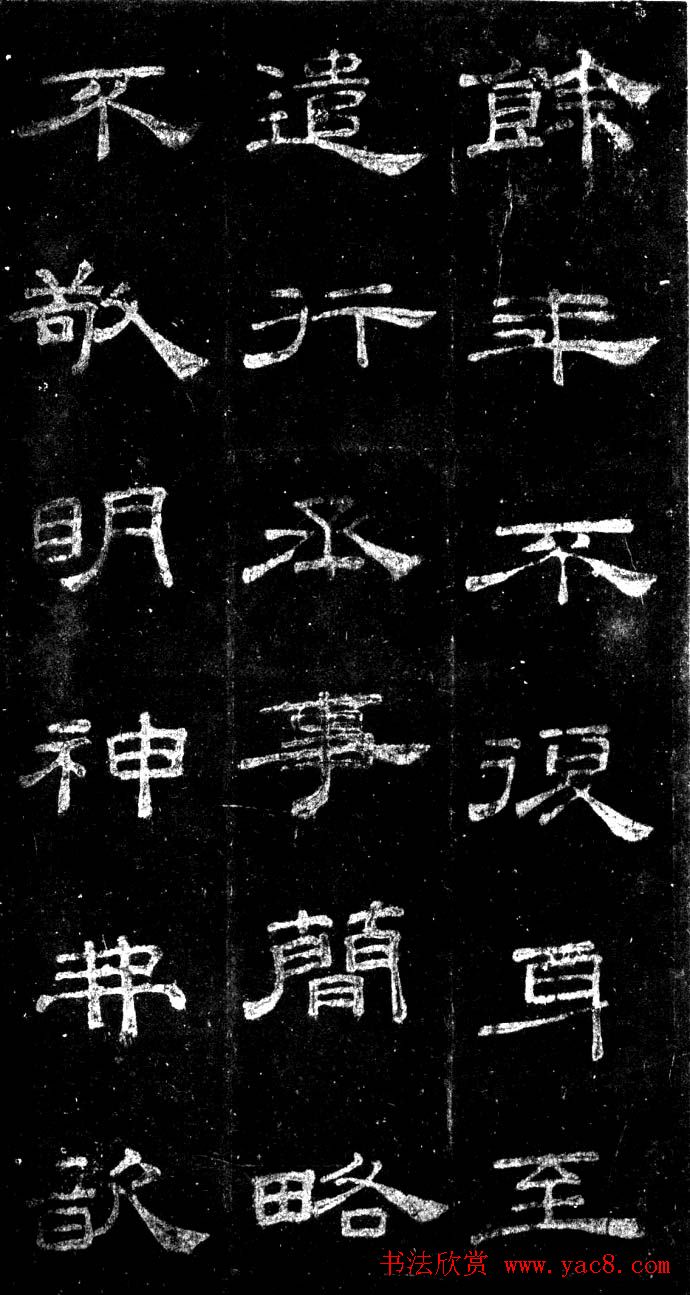 餘年不復身至
遣行丞事簡略
不敬明神弗歆
书法欣赏 www.yac8.com